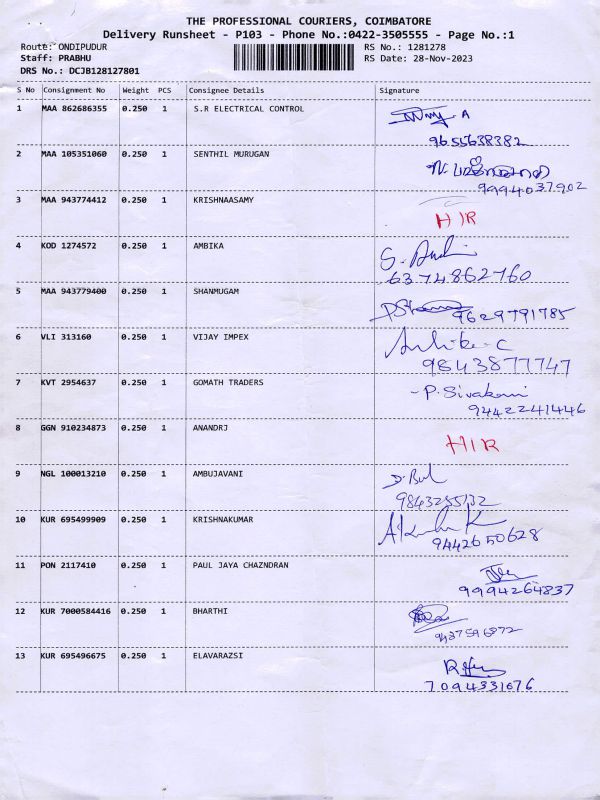 THE PROFESSIONAL COURIERS, COIMBATORE
Delivery Runsheet - P103 - Phone No.:0422-3505555 - Page No.:1
Route: ONDIPUDUR RS No.: 1281278
Staff: PRABHU RS Date: 28-Nov-2023
DRS No.: DCJB128127801
S No Consignment No Weight PCS Consignee Details Signature
1 MAA 862686355 0.250 1 S.R ELECTRICAL CONTROL
9655638382
2 MAA 105351060 0.250 1 SENTHIL MURUGAN
9994037902
3 MAA 943774412 0.250 1 KRISHNAASAMY
HIR
4 KOD 1274572 0.250 1 AMBIKA
6374862760
5 MAA 943779400 0.250 1 SHANMUGAM
9629791785
6 VLI 313160 0.250 1 VIJAY IMPEX
9843877747
7 KVT 2954637 0.250 1 GOMATH TRADERS
- P. Sivakami
9442241446
8 GGN 910234873 0.250 1 ANANDRJ
HIR
9 NGL 100013210 0.250 1 AMBUJAVANI
10 KUR 695499909 0.250 1 KRISHNAKUMAR
9442650628
11 PON 2117410 0.250 1 PAUL JAYA CHAZNDRAN
9994264837
12 KUR 7000584416 0.250 1 BHARTHI
13 KUR 695496675 0.250 1 ELAVARAZSI
7094331676